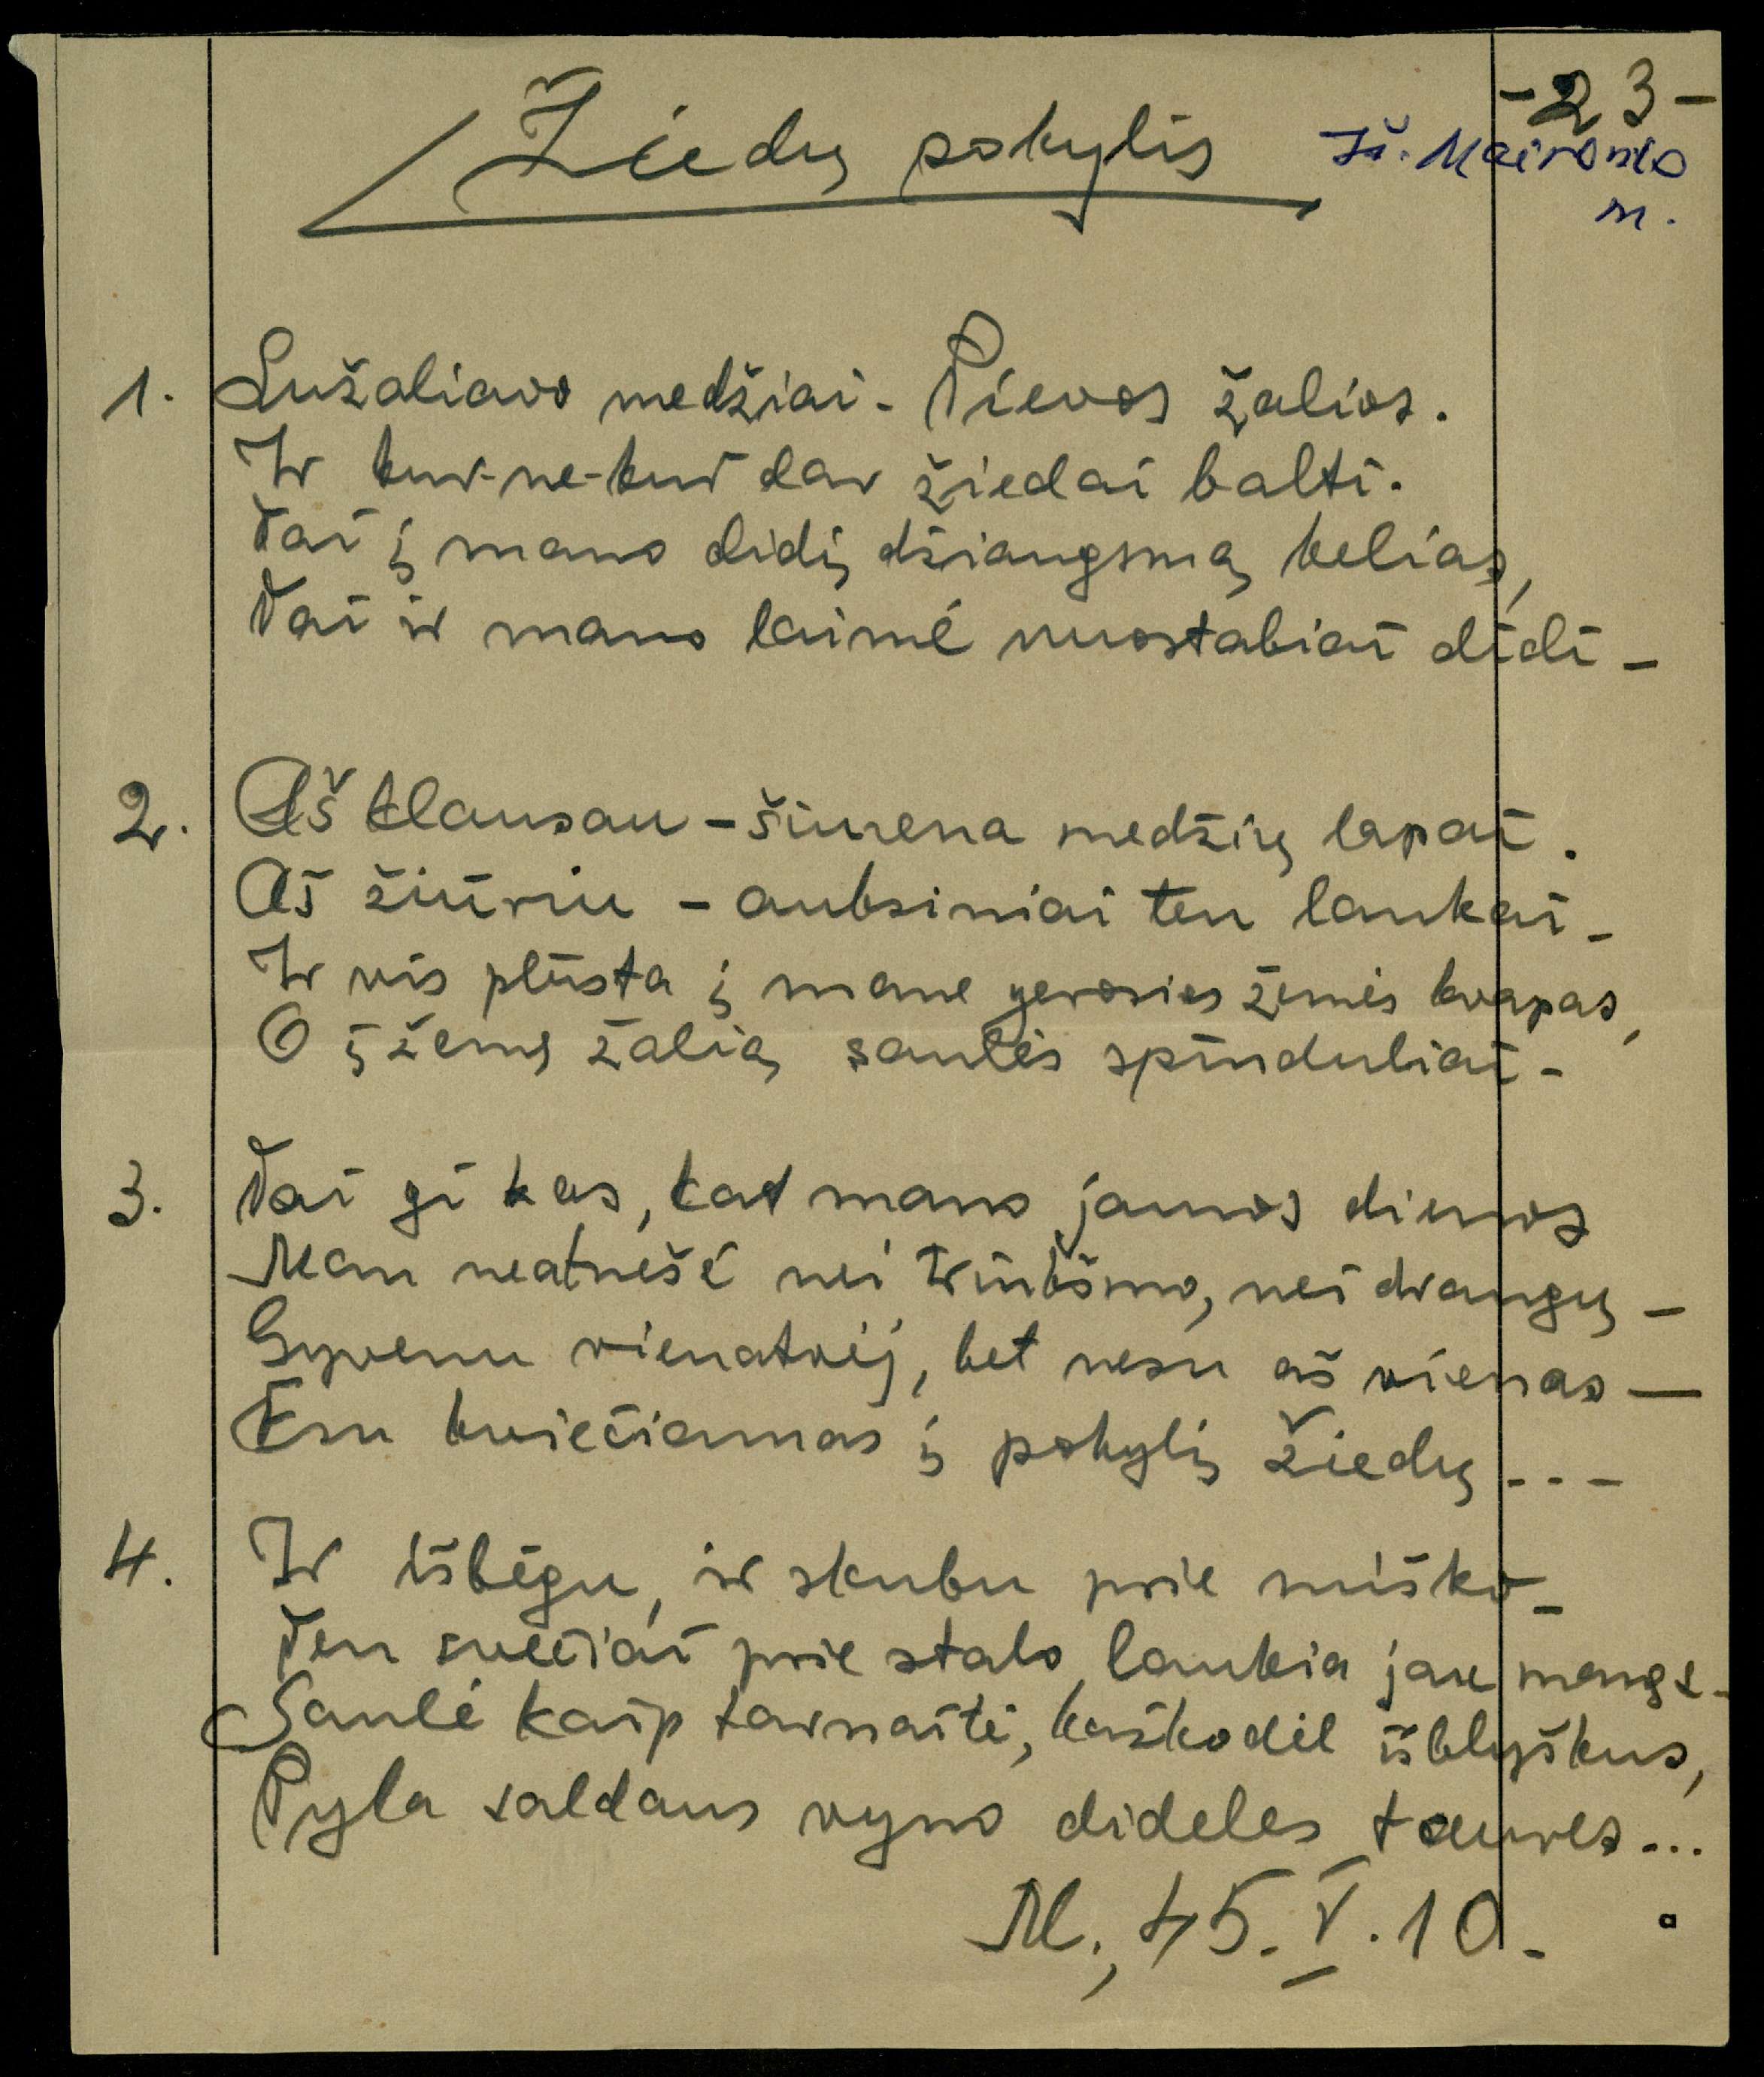 -23-
Žiedų pokylis
Iš. Maironio
m.
1. Sužaliavo medžiai. Pievos žalios.
Ir kur-ne-kur dar žiedai balti.
Tai į mano didį džiaugsmą kelias,
Tai ir mano laimė nuostabiai didi -
2. Aš klausau - šiurena medžių lapai.
Aš žiūriu - auksiniai ten laukai -
Ir vis plūsta į mane gerosios žemės kvapas,
O į žemę žalią saulės spinduliai -
3. Tai gi kas, kad mano jaunos dienos
Man neatnešė nei triukšmo, nei draugų -
Gyvenu vienatvėj, bet nesu aš vienas —
Esu kviečiamas į pokylį žiedų - - -
4. Ir išbėgu, ir skubu prie miško -
Ten svečiai prie stalo laukia jau manęs -
Saulė kaip tarnaitė, kažkodėl išblyškus,
Pyla saldaus vyno dideles taures...
M., 45. V. 10.